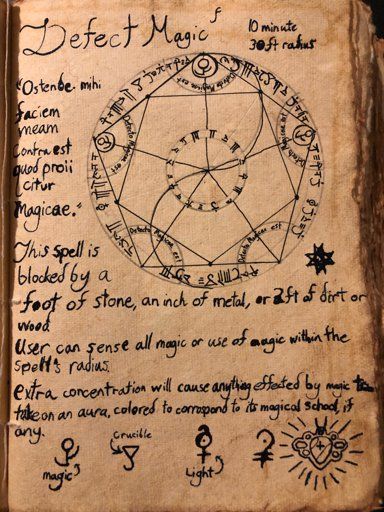 Detect Magic
10 minute
30ft radius
"Ostende mihi
faciem
meam
Contra est
quod proii
citur
Magicae."
Detecto Magicae est
Detecto Magicae est
Detecto Magicae est
Detecto Magicae est
Detecto Magicae est
This spell is
blocked by a
foot of stone, an inch of metal, or 2ft of dirt or
wood
User can sense all magic or use of magic within the
spell's radius.
extra concentration will cause anything effected by magic to
take on an aura, colored to correspond to its magical school, if
any.
Crucible
magic
Light